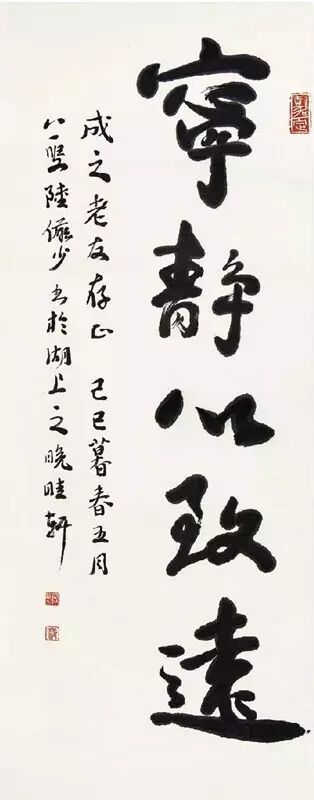 寧静以致遠
成之老友存正 己巳暮春五月
八一叟陸儼少书於湖上之晚晴軒